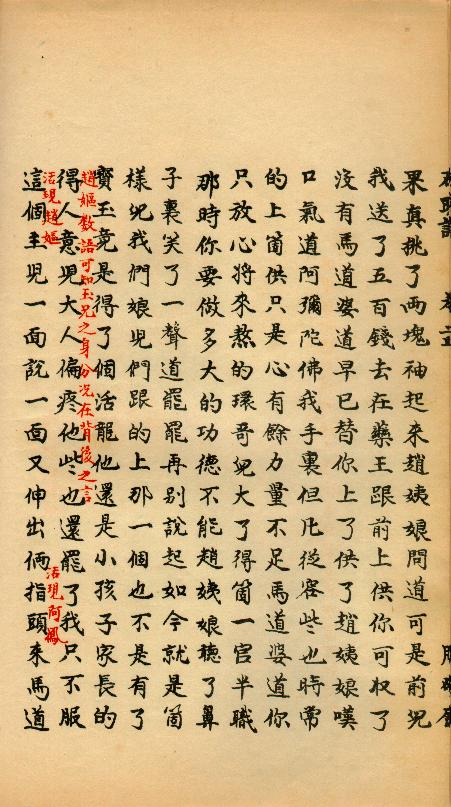 果真挑了兩塊袖起來趙姨娘問道可是前児
我送了五百錢去在藥王跟前上供你可收了
沒有馬道婆道早已替你上了供了趙姨娘嘆
口氣道阿彌陀佛我手裏但凡從容些也時常
的上箇供只是心有餘力量不足馬道婆道你
只放心將來熬的環哥児大了得箇一官半職
那時你要做多大的功德不能趙姨娘聽了鼻
子裏笑了一聲道罷罷再別說起如今就是箇
樣児我們娘児們跟的上那一個也不是有了
寳玉竟是得了個活龍他還是小孩子家長的
趙嫗数語可知玉兄之身分况在背後之言
得人意児大人偏疼他些也還罷了我只不服
活現趙嫗
活現阿鳳
這個主児一面說一面又伸出倆指頭來馬道